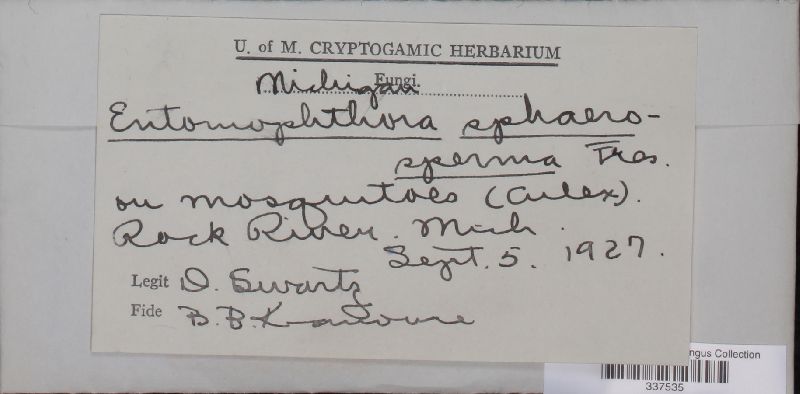 U. of M. CRYPTOGAMIC HERBARIUM
Fungi.
Michigan
Entomophthora sphaero-
sperma Fres.
on mosquitoes (Culex).
Rock River. Mich.
Sept. 5. 1927.
Legit D. Swartz
Fide B. B. Kanouse
ngus Collection
337535